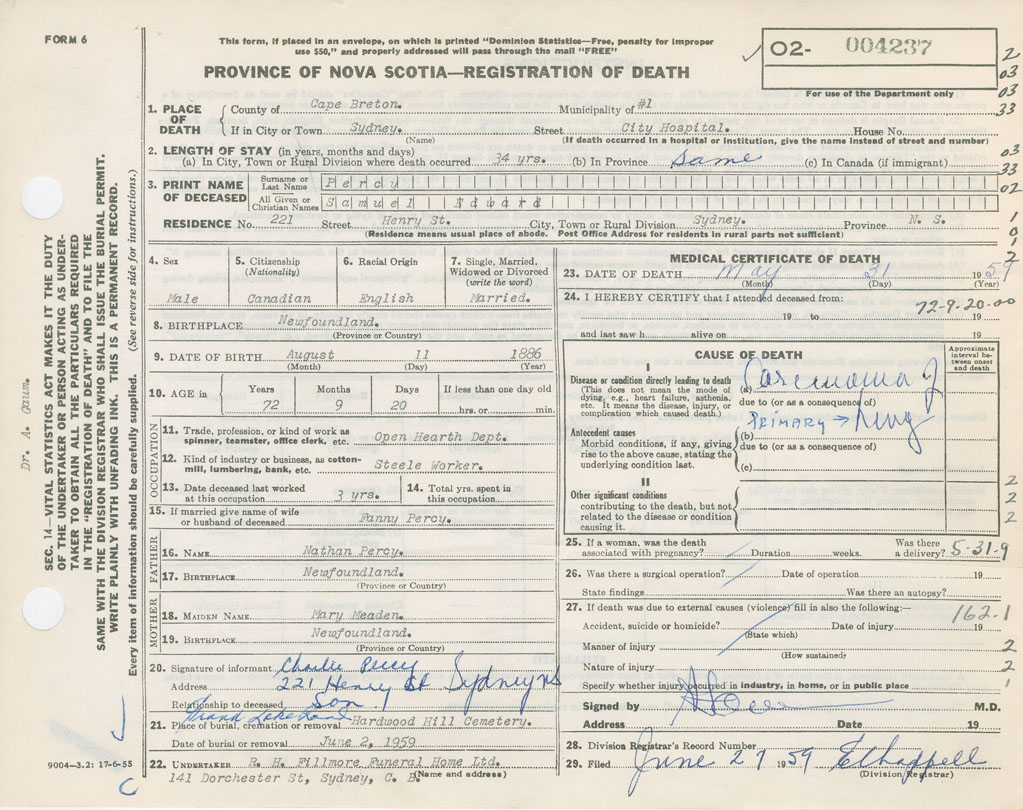 FORM 6
This form, if placed in an envelope, on which is printed "Dominion Statistics—Free, penalty for improper
use $50," and properly addressed will pass through the mail "FREE"
PROVINCE OF NOVA SCOTIA—REGISTRATION OF DEATH
O2- 004237
For use of the Department only
2
03
03
33
03
33
02
1
0
1
2
1. PLACE OF DEATH County of Cape Breton. Municipality of #1
If in City or Town Sydney. Street City Hospital. House No.
(Name) (If death occurred in a hospital or Institution, give the name instead of street and number)
2. LENGTH OF STAY (in years, months and days)
(a) In City, Town or Rural Division where death occurred 34 yrs. (b) In Province Same (c) In Canada (if immigrant)
3. PRINT NAME OF DECEASED
Surname or Last Name Percy
All Given or Christian Names Samuel Edward
RESIDENCE No. 221 Street Henry St. City, Town or Rural Division Sydney. Province N. S.
(Residence means usual place of abode. Post Office Address for residents in rural parts not sufficient)
4. Sex
Male
5. Citizenship
(Nationality)
Canadian
6. Racial Origin
English
7. Single, Married,
Widowed or Divorced
(write the word)
Married.
8. BIRTHPLACE Newfoundland.
(Province or Country)
9. DATE OF BIRTH August 11 1886
(Month) (Day) (Year)
10. AGE in Years Months Days If less than one day old
72 9 20 hrs. or min.
OCCUPATION
11. Trade, profession, or kind of work as
spinner, teamster, office clerk, etc. Open Hearth Dept.
12. Kind of industry or business, as cotton-
mill, lumbering, bank, etc. Steele Worker.
13. Date deceased last worked
at this occupation 3 yrs.
14. Total yrs. spent in
this occupation
15. If married give name of wife
or husband of deceased Fanny Percy.
FATHER
16. NAME Nathan Percy.
17. BIRTHPLACE Newfoundland.
(Province or Country)
MOTHER
18. MAIDEN NAME Mary Meaden.
19. BIRTHPLACE Newfoundland.
(Province or Country)
20. Signature of informant Charlie Percy
Address 221 Henry St Sydney NS
Relationship to deceased Son
21. Place of burial, cremation or removal Hardwood Hill Cemetery.
Date of burial or removal June 2, 1959
22. UNDERTAKER R. H. Fillmore Funeral Home Ltd.
141 Dorchester St, Sydney, C. B. (Name and address)
MEDICAL CERTIFICATE OF DEATH
23. DATE OF DEATH May 31 1959
(Month) (Day) (Year)
24. I HEREBY CERTIFY that I attended deceased from:
72-9-20.00
19 to 19
and last saw h alive on 19
CAUSE OF DEATH
Approximate
interval be-
tween onset
and death
I
Disease or condition directly leading to death
(This does not mean the mode of
dying, e.g., heart failure, asthenia,
etc. It means the disease, injury, or
complication which caused death.)
(a) Carcinoma of
due to (or as a consequence of)
PRIMARY → lung
Antecedent causes
Morbid conditions, if any, giving
rise to the above cause, stating the
underlying condition last.
(b)
due to (or as a consequence of)
(c)
II
Other significant conditions
contributing to the death, but not
related to the disease or condition
causing it.
2
2
2
25. If a woman, was the death
associated with pregnancy? Duration weeks. Was there
a delivery? 5-31-9
26. Was there a surgical operation? Date of operation 19
State findings Was there an autopsy?
27. If death was due to external causes (violence) fill in also the following:—
162.1
Accident, suicide or homicide? Date of injury 19
(State which)
Manner of injury 2
(How sustained)
Nature of injury 2
Specify whether injury occurred in industry, in home, or in public place 1
Signed by M.D.
Address Date 19
28. Division Registrar's Record Number
29. Filed June 27 1959 E Chappell
(Division Registrar)
9004—3.2: 17-6-55
Dr. A. Gaum.
SEC. 14—VITAL STATISTICS ACT MAKES IT THE DUTY
OF THE UNDERTAKER OR PERSON ACTING AS UNDER-
TAKER TO OBTAIN ALL THE PARTICULARS REQUIRED
IN THE "REGISTRATION OF DEATH" AND TO FILE THE
SAME WITH THE DIVISION REGISTRAR WHO SHALL ISSUE THE BURIAL PERMIT.
WRITE PLAINLY WITH UNFADING INK. THIS IS A PERMANENT RECORD.
Every item of information should be carefully supplied. (See reverse side for instructions.)